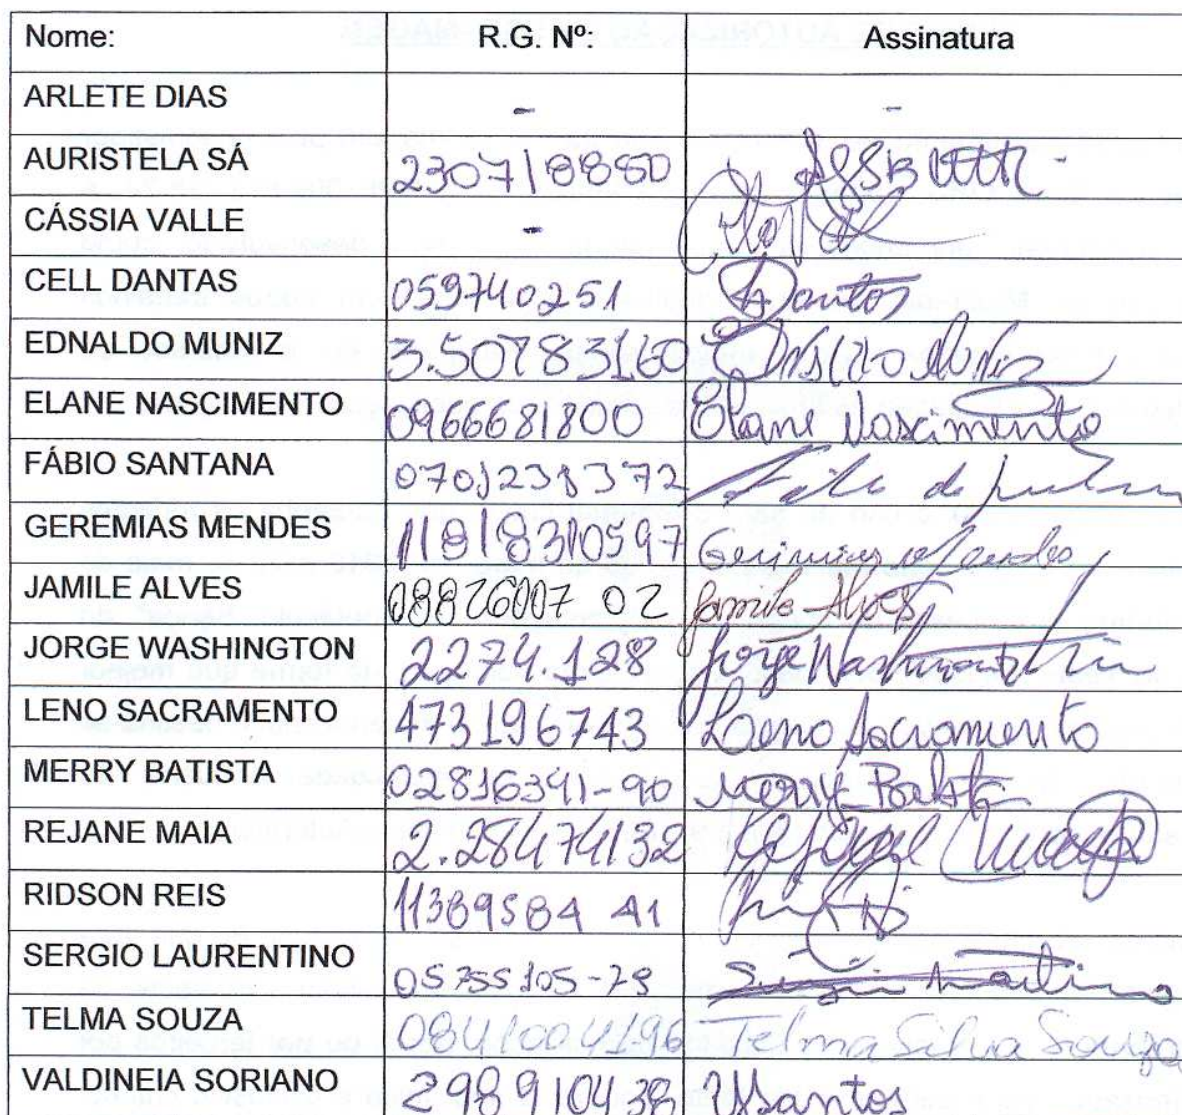 Nome: R.G. Nº: Assinatura
ARLETE DIAS - -
AURISTELA SÁ 2307188880
CÁSSIA VALLE -
CELL DANTAS 059740251 Dantas
EDNALDO MUNIZ 3.50783160 Ednaldo Muniz
ELANE NASCIMENTO 0966681800 Elane Nascimento
FÁBIO SANTANA
GEREMIAS MENDES Geremias Mendes
JAMILE ALVES 08826007 02 Jamile Alves
JORGE WASHINGTON 2274.128 Jorge Washington
LENO SACRAMENTO 473196743 Leno Sacramento
MERRY BATISTA 02816391-90 Merry Batista
REJANE MAIA 2.28474132 Rejane Maia
RIDSON REIS 11389584 41
SERGIO LAURENTINO 05755105-79
TELMA SOUZA 0841004196 Telma Silva Souza
VALDINEIA SORIANO 298910438 VSantos